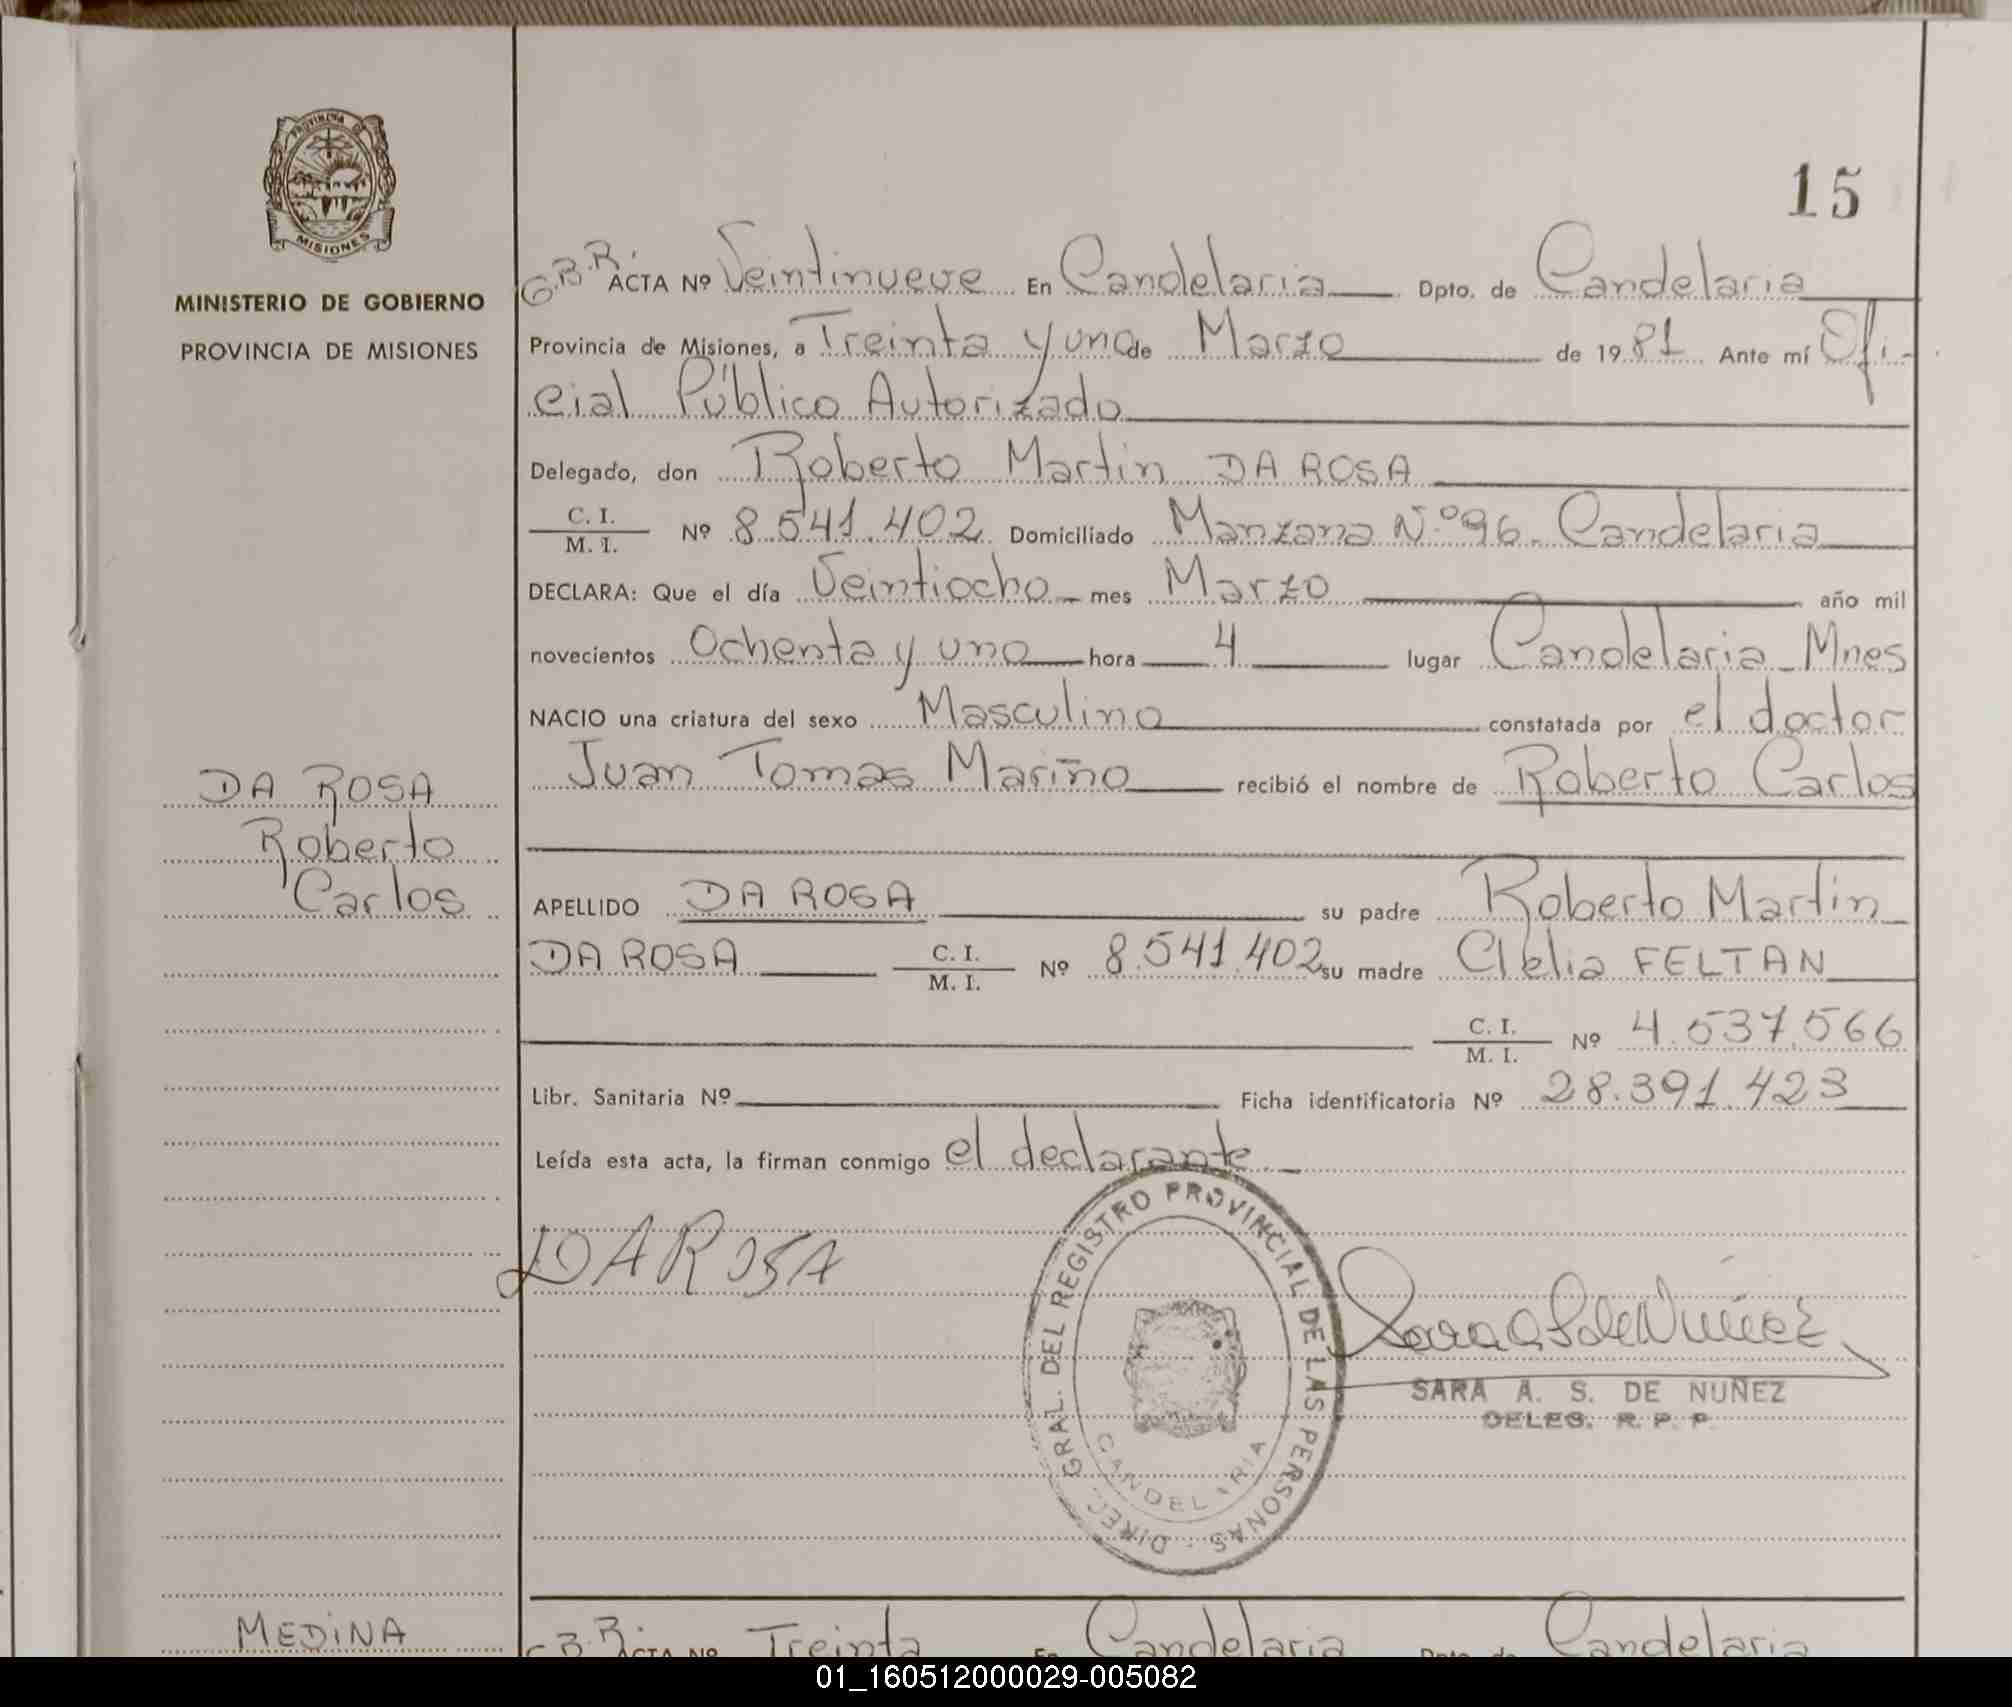 PROVINCIA DE
MISIONES
MINISTERIO DE GOBIERNO
PROVINCIA DE MISIONES
DA ROSA
Roberto
Carlos
15
G.B.R. ACTA Nº Veintinueve En Candelaria Dpto. de Candelaria
Provincia de Misiones, a Treinta y uno de Marzo de 1981 Ante mí Ofi-
cial Público Autorizado
Delegado, don Roberto Martin DA ROSA
C. I.
M. I. Nº 8.541.402 Domiciliado Manzana N.º 96 - Candelaria
DECLARA: Que el día Veintiocho mes Marzo año mil
novecientos Ochenta y uno hora 4 lugar Candelaria - Mnes
NACIO una criatura del sexo Masculino constatada por el doctor
Juan Tomas Mariño recibió el nombre de Roberto Carlos
APELLIDO DA ROSA su padre Roberto Martin
DA ROSA C. I.
M. I. Nº 8.541.402 su madre Clelia FELTAN
C. I.
M. I. Nº 4.537.566
Libr. Sanitaria Nº Ficha identificatoria Nº 28.391.423
Leída esta acta, la firman conmigo el declarante
DA ROSA
DIREC. GRAL. DEL REGISTRO PROVINCIAL DE LAS PERSONAS
CANDELARIA
Sara A S de Núñez
SARA A. S. DE NUÑEZ
DELEG. R. P. P.
MEDINA
G.B.R. ACTA Nº Treinta En Candelaria Dpto. de Candelaria
01_160512000029-005082